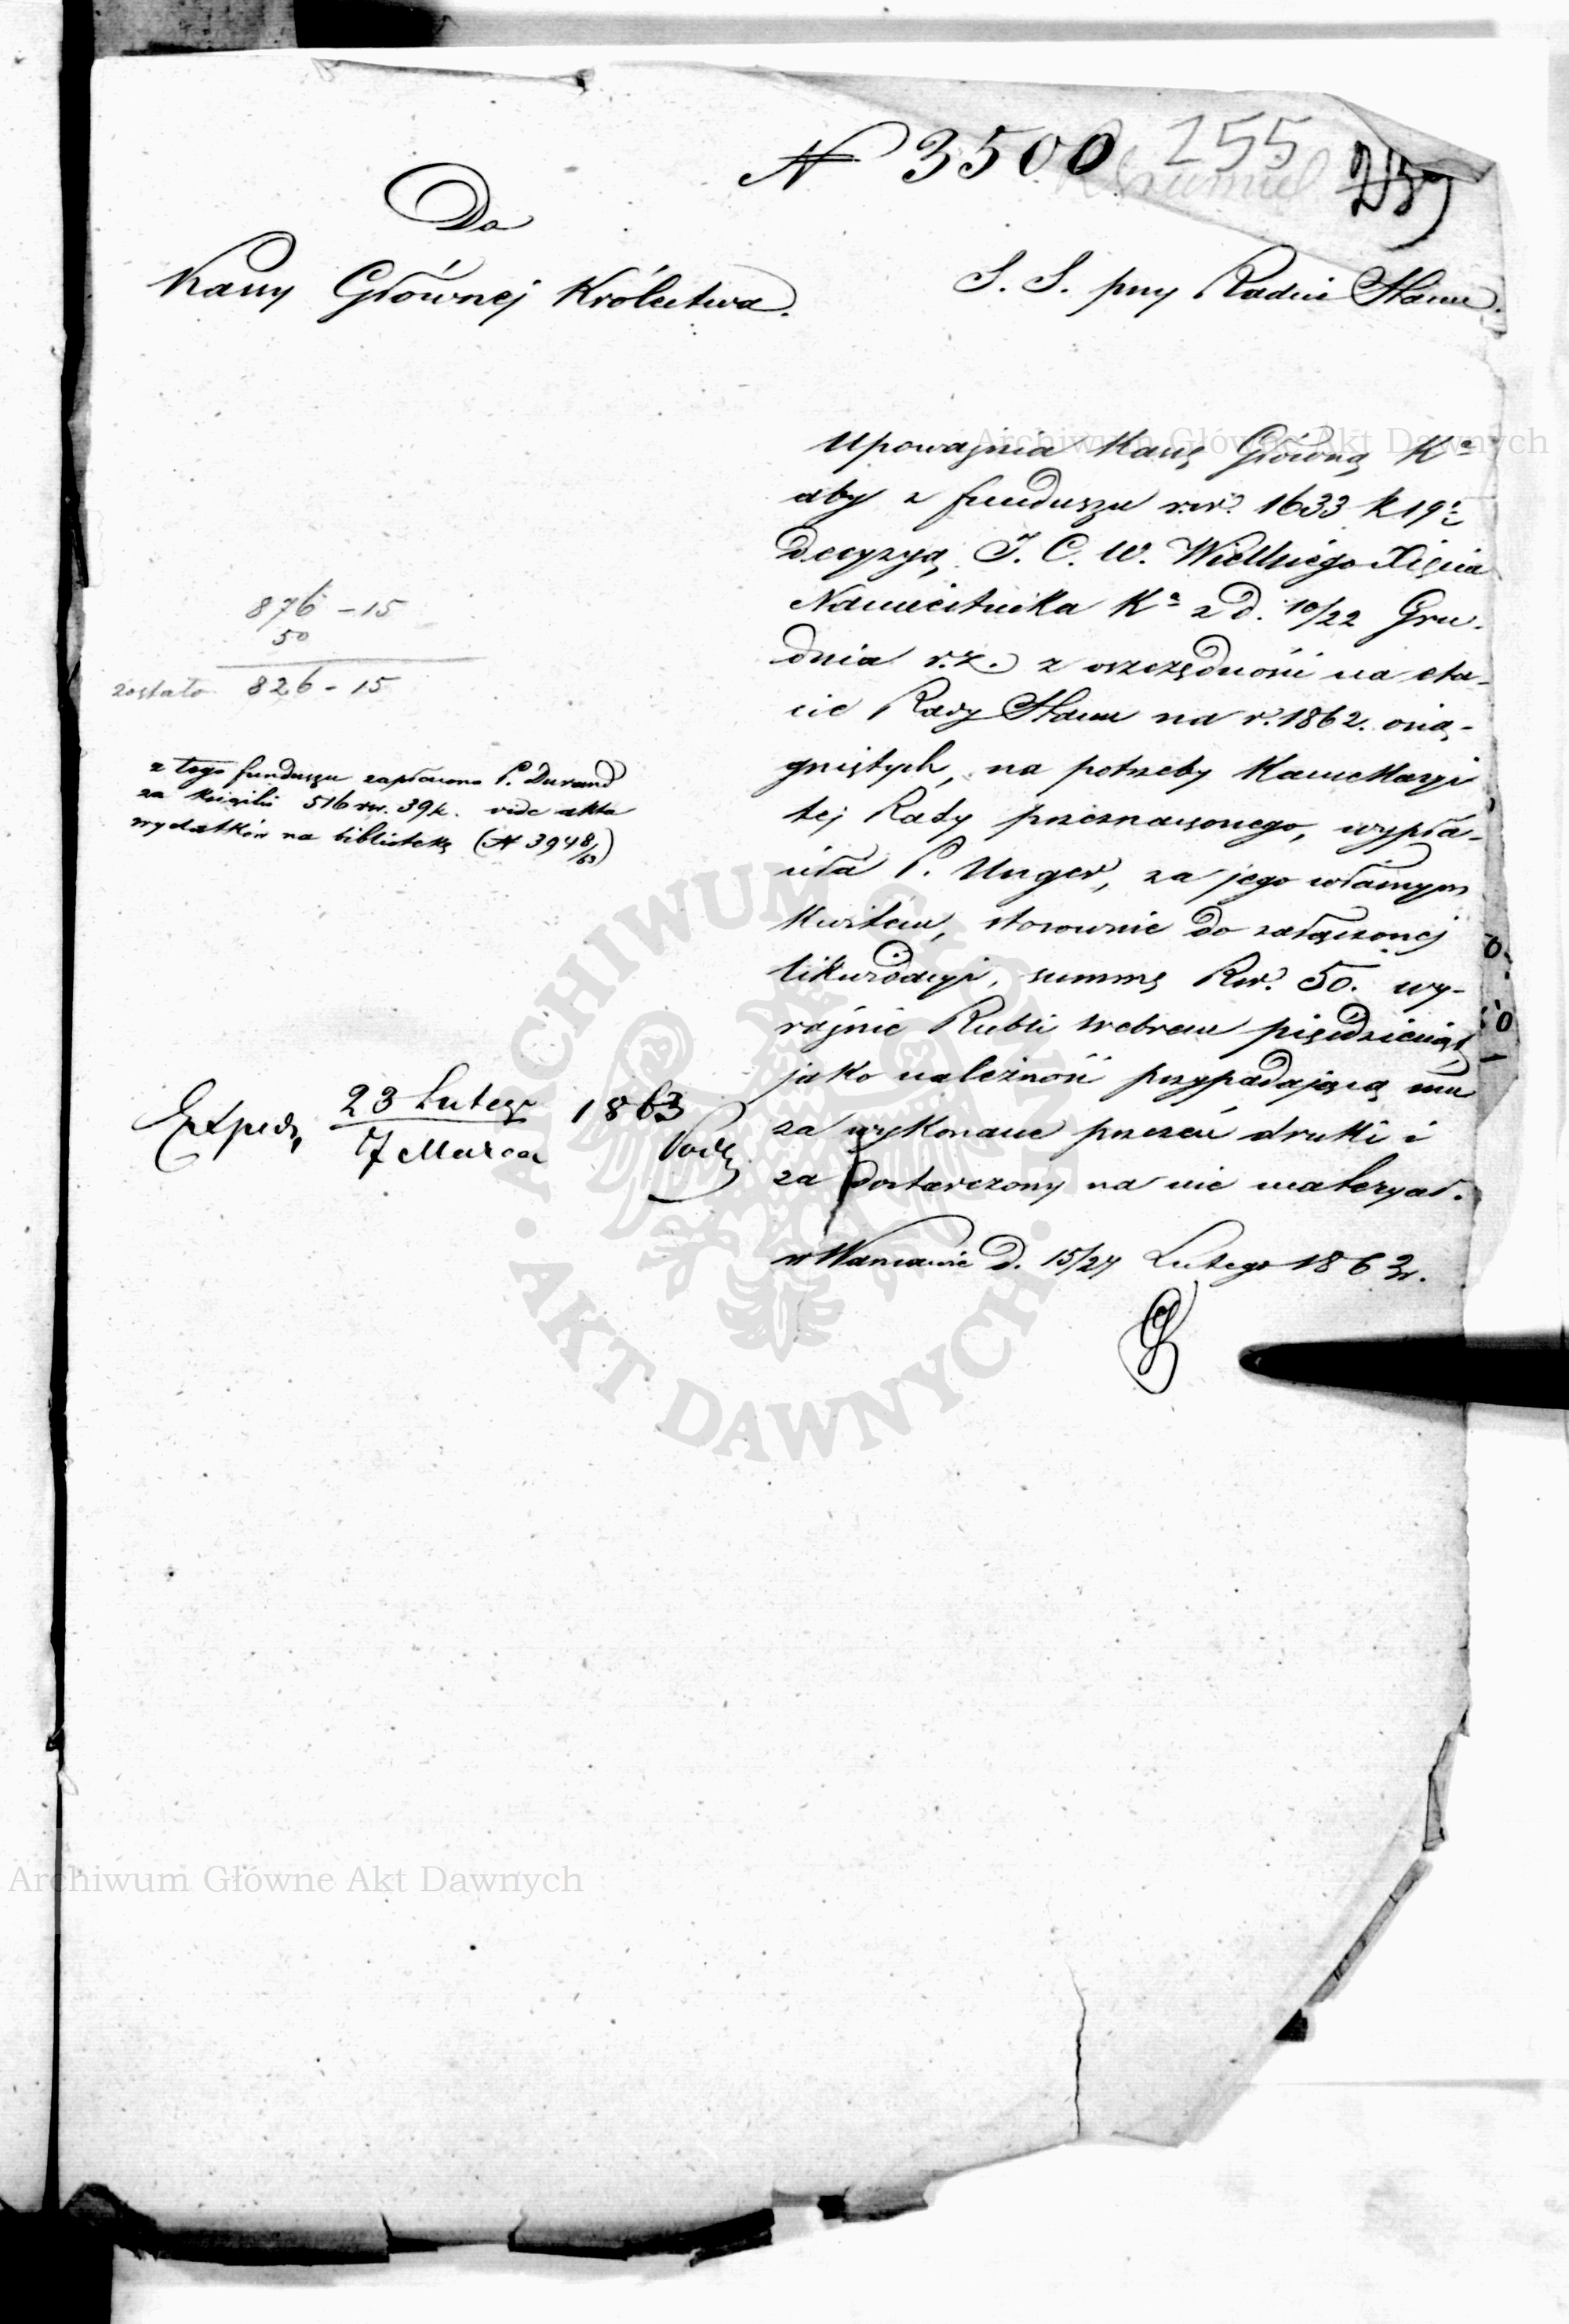 N 3500
255
Do
Kassy Głównej Królestwa.
S. S. przy Radzie Stanu.
Upoważnia Kassę Główną Kª
aby z funduszu rsr. 1633 k 19½
decyzyą J. C. W. Wielkiego Xięcia
Namiestnika Kª z d. 10/22 Gru-
dnia r. z. z oszczędności na eta-
cie Rady Stanu na r. 1862. osią-
gniętych, na potrzeby Kancellaryi
tej Rady przeznaczonego, wypła-
ciła P. Unger, za jego własnym
kwitem, stosownie do załączonej
likwidacyi, summę Rsr. 50. wy-
raźnie Rubli srebrem pięćdziesiąt,
jako należność przypadającą mu
za wykonane przezeń druki i
za dostarczony na nie materyał.
w Warszawie d. 15/27 Lutego 1863 r.
876 - 15
50
zostało 826 - 15
z tego funduszu zapłacono P. Durand
za książki 516 rsr. 39 k. vide akta
wydatków na bibliotekę (N 3948/63)
Exped. 23 Lutego / 7 Marca 1863
Archiwum Główne Akt Dawnych
ARCHIWUM GŁÓWNE
AKT DAWNYCH
Archiwum Główne Akt Dawnych